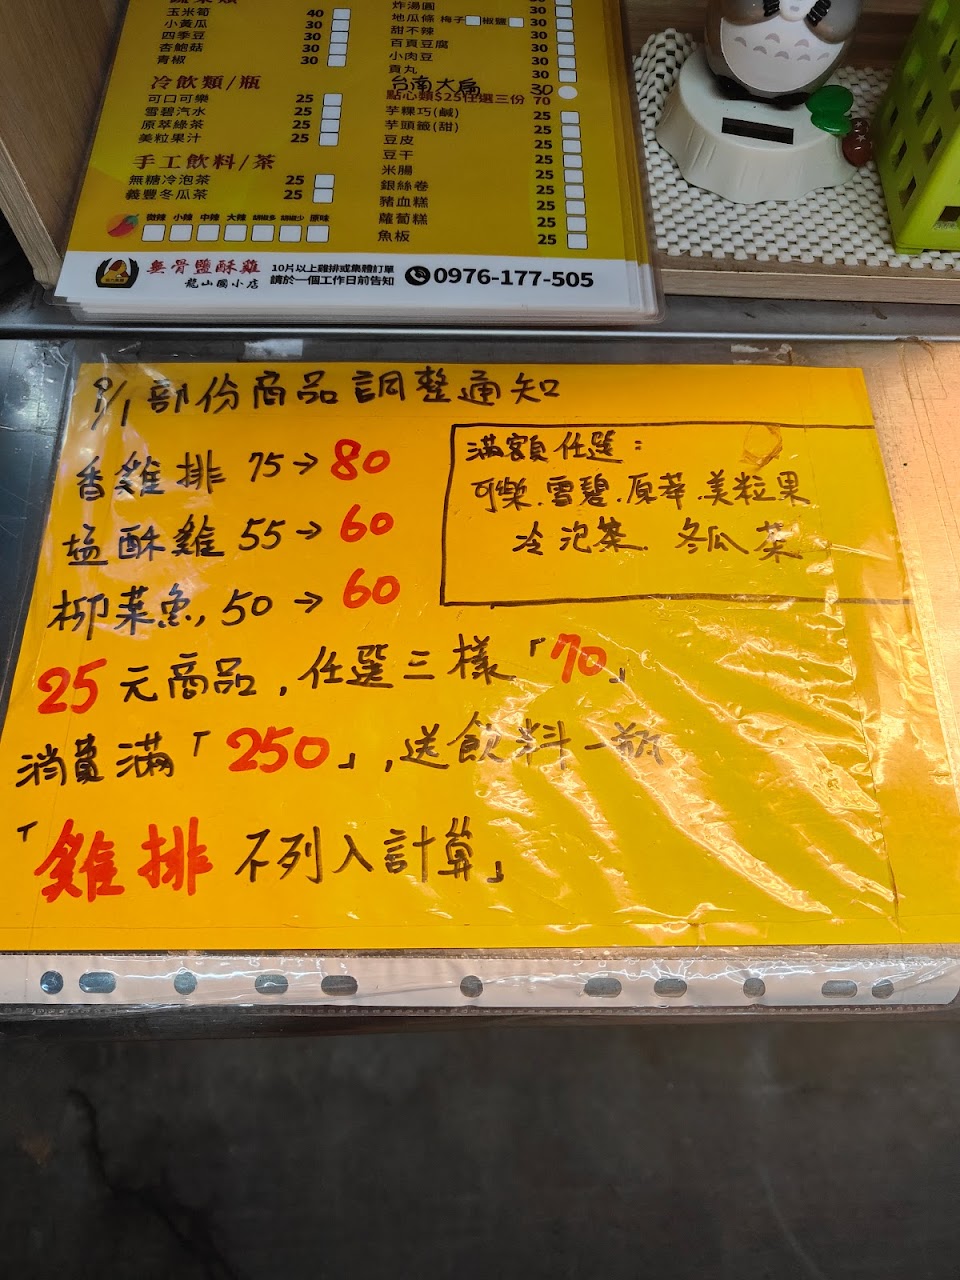 玉米筍 40
小黃瓜 30
四季豆 30
杏鮑菇 30
青椒 30
冷飲類/瓶
可口可樂 25
雪碧汽水 25
原萃綠茶 25
美粒果汁 25
手工飲料/茶
無糖冷泡茶 25
義豐冬瓜茶 25
微辣 小辣 中辣 大辣 胡椒多 胡椒少 原味
炸湯圓 30
地瓜條 梅子 椒鹽 30
甜不辣 30
百頁豆腐 30
小肉豆 30
貢丸 30
台南大扁 30
點心類$25任選三份 70
芋粿巧(鹹) 25
芋頭籤(甜) 25
豆皮 25
豆干 25
米腸 25
銀絲卷 25
豬血糕 25
蘿蔔糕 25
魚板 25
無骨鹽酥雞
龍山國小店
10片以上雞排或集體訂單
請於一個工作日前告知
0976-177-505
9/1部份商品調整通知
香雞排 75→80
塩酥雞 55→60
柳葉魚, 50→60
25元商品,任選三樣「70」
消費滿「250」,送飲料一瓶
「雞排不列入計算」
滿額任選:
可樂.雪碧.原萃.美粒果
冷泡茶.冬瓜茶